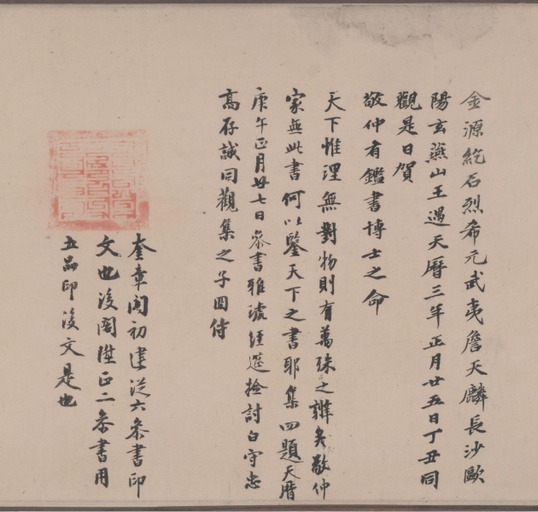 金源紇石烈希元武夷詹天麟長沙歐
陽玄燕山王遇天曆三年正月廿五日丁丑同
觀是日賀
敬仲有鑑書博士之命
天下惟理無對物則有萬殊之辨矣敬仲
家無此書何以鑒天下之書耶集四題天曆
庚午正月廿七日參書雅琥經筵檢討白守忠
高存誠同觀集之子四侍
奎章閣初建從六參書印
文也後閣陞正二參書用
五品印後文是也